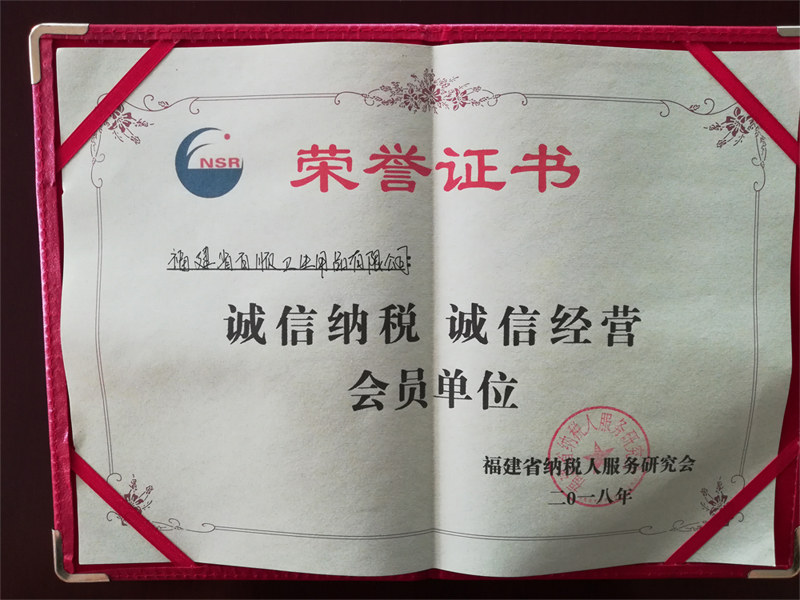 NSR
荣誉证书
福建省百顺卫生用品有限公司:
诚信纳税 诚信经营
会员单位
福建省纳税人服务研究会
福建省纳税人服务研究会
二0一八年